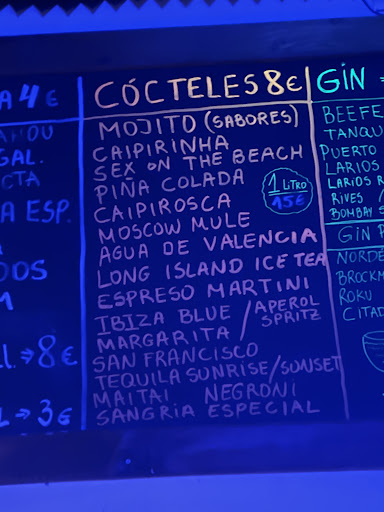 A 4€
AHOU
GAL.
CTA
A ESP.
DOS
M
L. → 8€
L → 3€
CÓCTELES 8€
MOJITO (SABORES)
CAIPIRINHA
SEX ON THE BEACH
PIÑA COLADA
1 LITRO
15€
CAIPIROSCA
MOSCOW MULE
AGUA DE VALENCIA
LONG ISLAND ICE TEA
ESPRESO MARTINI
IBIZA BLUE / APEROL
MARGARITA / SPRITZ
SAN FRANCISCO
TEQUILA SUNRISE/SUNSET
MAITAI NEGRONI
SANGRIA ESPECIAL
GIN
BEEFE
TANQU
PUERTO
LARIOS
LARIOS R
RIVES /
BOMBAY S
GIN P
NORDE
BROCKM
ROKU
CITAD